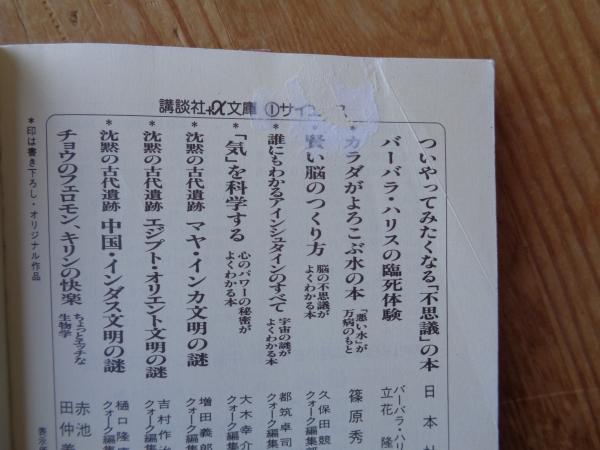 講談社+α文庫 ①サイエンス
ついやってみたくなる「不思議」の本
日本
バーバラ・ハリスの臨死体験
バーバラ・ハリ
立花 隆
*カラダがよろこぶ水の本
「悪い水」が
万病のもと
篠原秀
*賢い脳のつくり方
脳の不思議が
よくわかる本
久保田競
クォーク編集部
*誰にもわかるアインシュタインのすべて
宇宙の謎が
よくわかる本
都筑卓司
クォーク編集
*「気」を科学する
心のパワーの秘密が
よくわかる本
大木幸介
クォーク編集
*沈黙の古代遺跡 マヤ・インカ文明の謎
増田義郎
クォーク編集
*沈黙の古代遺跡 エジプト・オリエント文明の謎
吉村作治
クォーク編集
*沈黙の古代遺跡 中国・インダス文明の謎
樋口隆康
クォーク編集
チョウのフェロモン、キリンの快楽
ちょっとエッチな
生物学
赤池
田仲義
*印は書き下ろし・オリジナル作品
表示